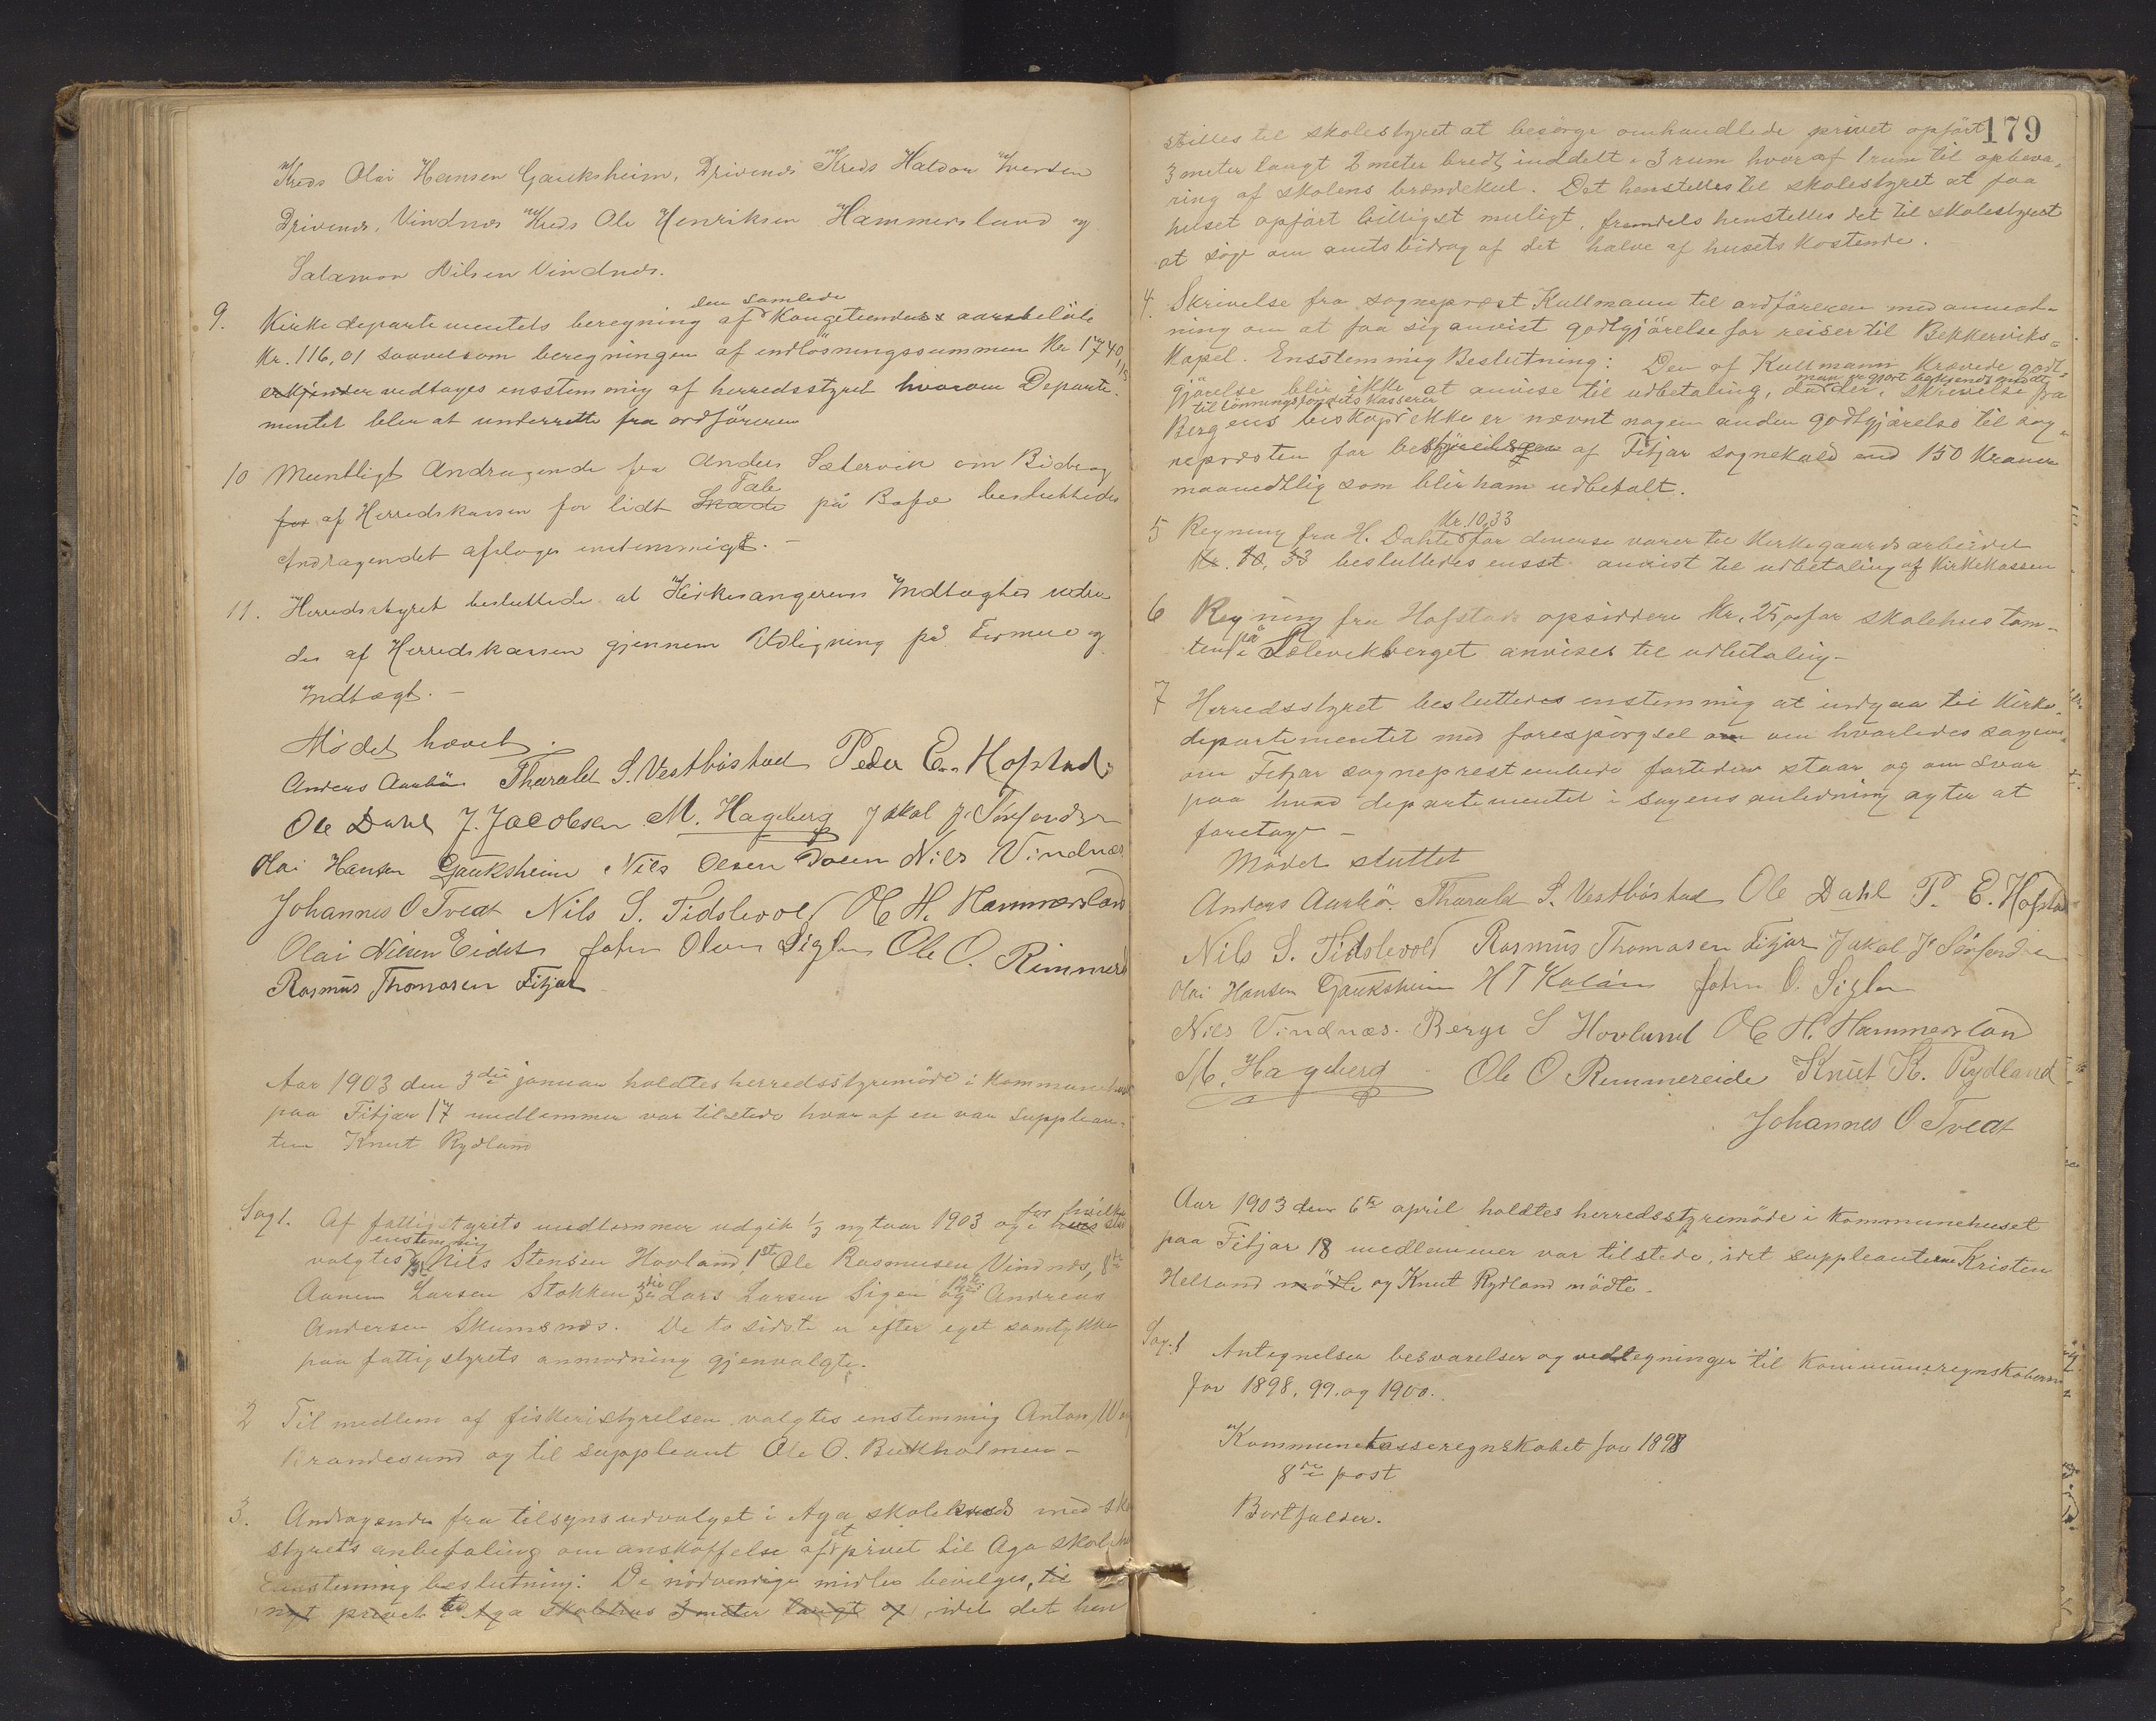 Kreds Olai Hansen Gauksheim, Drivenes Kreds Haldor Iversen
Drivenes, Vindnes Kreds Ole Henriksen Hammersland og
Salamon Nilsen Vindnes.
9. Kirkedepartementets beregning af den samlede Kongetiendes aarsbeløb
Kr. 116,01 saavelsom beregningen af indløsningssummen Kr 1740,15
erkjender vedtages ensstemmig af herredsstyret hvorom Departe-
mentet bliver at underrette fra ordføreren
10 Mundtligt Andragende fra Anders Sætervik om Bidrag
for af Herredskassen for lidt Skade Tab på Baae besluttedes
Andragendet afslaaes enstemmigt. -
11. Herredsstyret besluttede at Kirkesangerens Indtægter udre-
des af Herredskassen gjennem Udligning på Formue og
Indtægt. -
Mødet hævet.
Anders Aarbø Tharald S. Vestbøstad Peder E. Hofstad
Ole Dahl J. Jacobsen M. Hageberg Jakob J. Sørfonden
Olai Hansen Gauksheim Nils Olsen Nils Vindnæs
Johannes O Tvedt Nils S. Tidslevold O H. Hammersland
Olai Nilsen Eide John Olsen Sigln Ole O. Rimmere
Rasmus Thomasen Fitjar
Aar 1903 den 3die januar holdtes herredsstyremøde i Kommunehuset
paa Fitjar 17 medlemmer var tilstede hvoraf en var supplean-
ten Knut Rydland
Sag 1. Af fattigstyrets medlemmer udgik 1/3 nytaar 1903 og for hvilke i hvis sted
valgtes enstemmig Nils Stensen Hovland, 1ste Ole Rasmusen Vindnes, 8de
Aanen Larsen Stokken 3die Lars Larsen Sigen og 12te Andreas
Andersen Skumsnes. De to sidste er efter eget samtykke
paa fattigstyrets anmodning gjenvalgte.
2 Til medlem af fiskeristyrelsen valgtes enstemmig Anton
Brandesund og til suppleant Ole O. Bukholmen -
3. Andragende fra tilsynsudvalget i Aga skolekreds med sko
styrets anbefaling om anskaffelse af et privet til Aga skole
Eensstemmig beslutning: De nødvendige midler bevilges, til
nyt privet til Aga skolehus 3 meter langt og, idet det hen
179
stilles til skolestyret at besørge omhandlede privet opført
3 meter langt 2 meter bredt inddelt i 3 rum hvoraf 1 rum til opbeva-
ring af skolens brændekul. Det henstilles til skolestyret at faa
huset opført billigst muligt, fremdeles henstilles det til skolestyret
at søge om amtsbidrag af det halve af husets kostende.
4. Skrivelse fra sogneprest Kullmann til ordføreren med anmod-
ning om at faa sig anvist godtgjørelse for reiser til Bekkerviks-
Kapel. Ensstemmig Beslutning: Den af Kullmann krævede godt-
gjørelse blir ikke at anvise til udbetaling, da der, man er gjort bekjendt med i skrivelse fra
Bergens biskop til lønningsfondets kasserer ikke er nævnt nogen anden godtgjørelse til sog-
nepresten for bestyrelsen af Fitjar sognekald end 150 Kroner
maanedtlig som blir ham udbetalt.
5 Regning fra H. Dahle Kr. 10,33 for diverse varer til Kirkegaardsarbeidet
Kr. 10,33 besluttedes ensst. anvist til udbetaling af Kirkekassen
6 Regning fra Hofstad opsiddere Kr. 25,00 for skolehustom-
ten på i Sælevikberget anvises til udbetaling -
7 Herredsstyret besluttedes enstemmig at indgaa til Kirke-
departementet med forespørgsel om om hvorledes sagen
om Fitjar sogneprestembede fortiden staar og om svar
paa hvad departementet i sagens anledning agter at
foretage -
Mødet sluttet
Anders Aarbø. Tharald S. Vestbøstad Ole Dahl P. E. Hofstad
Nils S. Tidslevold Rasmus Thomasen Fitjar Jakob J Sørfonden
Olai Hansen Gauksheim H T Kaldn John O. Sigln
Nils Vindnæs. Berge S Hovland O H. Hammersland
M. Hageberg Ole O Rimmereide Knut K. Rydland
Johannes O Tvedt
Aar 1903 den 6te april holdtes herredsstyremøde i Kommunehuset
paa Fitjar 18 medlemmer var tilstede, idet suppleanterne Kristen
Helland mødte og Knut Rydland mødte.
Sag. 1 Antegnelser besvarelser og vedtegninger til Kommuneregnskaberne
for 1898, 99. og 1900.
Kommunekasseregnskabet for 1898
8de post
Bortfalder.